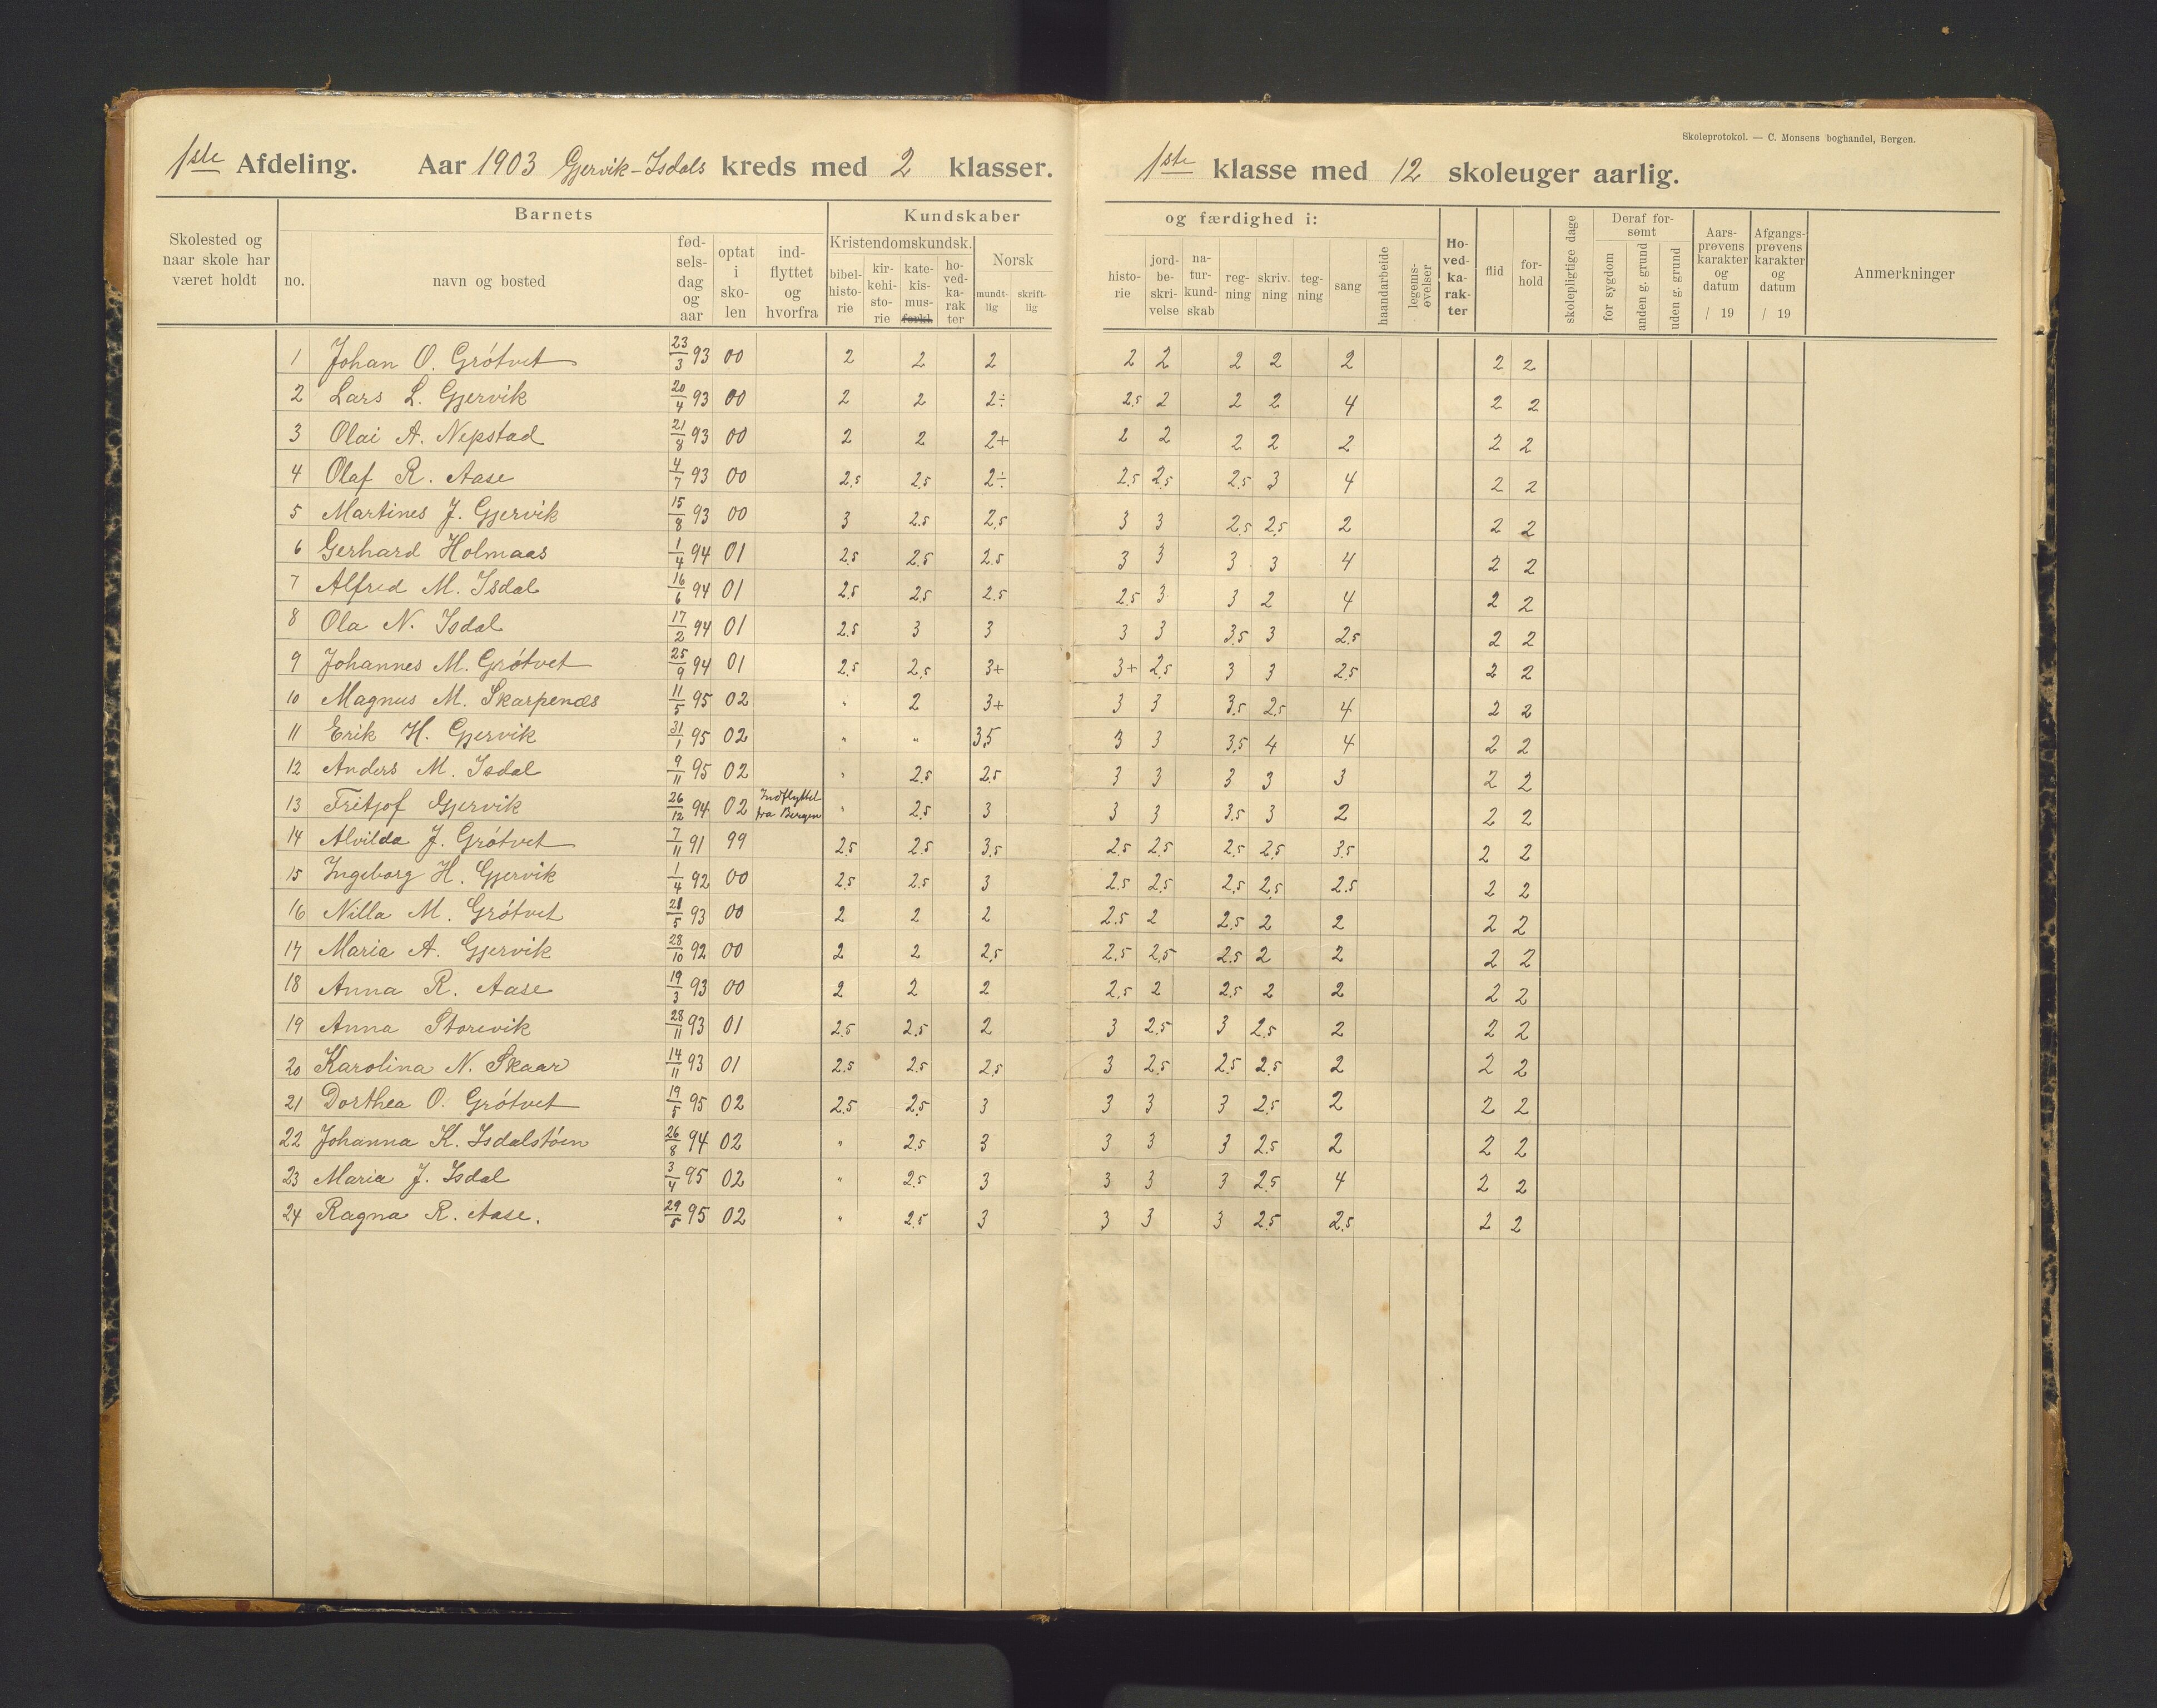 Skoleprotokol. — C. Monsens boghandel, Bergen.
1ste Afdeling. Aar 1903 Gjervik-Isdals kreds med 2 klasser. 1ste klasse med 12 skoleuger aarlig.
Skolested og naar skole har været holdt
Barnets
no.
navn og bosted
fød-sels-dag og aar
optat i sko-len
ind-flyttet og hvorfra
Kundskaber og færdighed i:
Kristendomskundsk.
bibel-histo-rie
kir-kehi-sto-rie
kate-kis-mus-forkl.
ho-ved-ka-rak ter
Norsk
mundt-lig
skrift-lig
histo-rie
jord-be-skri-velse
na-tur-kund-skab
reg-ning
skriv-ning
teg-ning
sang
haandarbeide
legems-øvelser
Ho-ved-ka-rak-ter
flid
for-hold
skolepligtige dage
Deraf for-sømt
for sygdom
anden g. grund
uden g. grund
Aars-prøvens karakter og datum / 19
Afgangs-prøvens karakter og datum / 19
Anmerkninger
1 Johan O. Grótvet 23/3 93 00 2 2 2 2 2 2 2 2 2 2
2 Lars L. Gjervik 20/4 93 00 2 2 2÷ 2.5 2 2 2 4 2 2
3 Olai A. Nepstad 21/8 93 00 2 2 2+ 2 2 2 2 2 2 2
4 Olaf R. Aase 4/7 93 00 2.5 2.5 2÷ 2.5 2.5 2.5 3 4 2 2
5 Martines J. Gjervik 15/8 93 00 3 2.5 2.5 3 3 2.5 2.5 2 2 2
6 Gerhard Holmaas 1/4 94 01 2.5 2.5 2.5 3 3 3 3 4 2 2
7 Alfred M. Isdal 16/6 94 01 2.5 2.5 2.5 2.5 3 3 2 4 2 2
8 Ola N. Isdal 17/2 94 01 2.5 3 3 3 3 3.5 3 2.5 2 2
9 Johannes M. Grótvet 25/9 94 01 2.5 2.5 3+ 3+ 2.5 3 3 2.5 2 2
10 Magnus M. Skarpenæs 11/5 95 02 " 2 3+ 3 3 3.5 2.5 4 2 2
11 Erik H. Gjervik 31/1 95 02 " " 3.5 3 3 3.5 4 4 2 2
12 Anders M. Isdal 9/11 95 02 " 2.5 2.5 3 3 3 3 3 2 2
13 Fritjof Gjervik 26/12 94 02 Indflyttet fra Bergen " 2.5 3 3 3 3.5 3 2 2 2
14 Alvilda J. Grótvet 7/11 91 99 2.5 2.5 3.5 2.5 2.5 2.5 2.5 3.5 2 2
15 Ingeborg H. Gjervik 1/4 92 00 2.5 2.5 3 2.5 2.5 2.5 2.5 2.5 2 2
16 Nilla M. Grótvet 21/5 93 00 2 2 2 2.5 2 2.5 2 2 2 2
17 Maria A. Gjervik 28/10 92 00 2 2 2.5 2.5 2.5 2.5 2 2 2 2
18 Anna R. Aase 19/3 93 00 2 2 2 2.5 2 2.5 2 2 2 2
19 Anna Storevik 28/11 93 01 2.5 2.5 2 3 2.5 3 2.5 2 2 2
20 Karolina N. Skaar 14/11 93 01 2.5 2.5 2.5 3 2.5 2.5 2.5 2 2 2
21 Dorthea O. Grótvet 19/5 95 02 2.5 2.5 3 3 3 3 2.5 2 2 2
22 Johanna K. Isdalstóen 26/8 94 02 " 2.5 3 3 3 3 2.5 2 2 2
23 Maria J. Isdal 3/4 95 02 " 2.5 3 3 3 3 2.5 4 2 2
24 Ragna R. Aase. 29/5 95 02 " 2.5 3 3 3 3 2.5 2.5 2 2